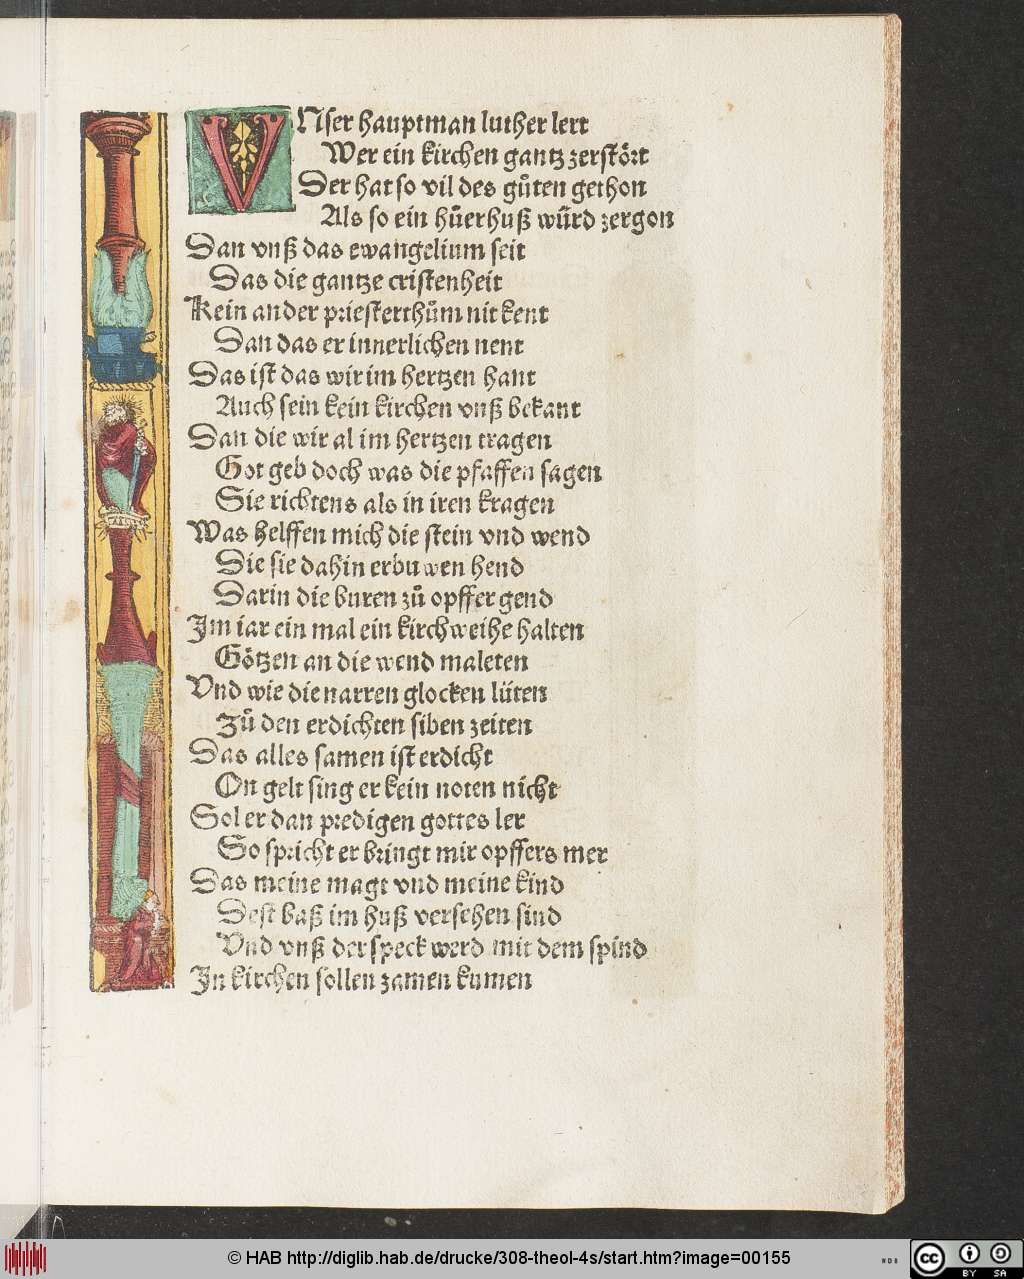 VNser hauptman luther lert
Wer ein kirchen gantz zerstört
Der hat so vil des gůten gethon
Als so ein hůerhuß würd zergon
Dan vnß das ewangelium seit
Das die gantze cristenheit
Kein ander priesterthům nit kent
Dan das er innerlichen nent
Das ist das wir im hertzen hant
Auch sein kein kirchen vnß bekant
Dan die wir al im hertzen tragen
Got geb doch was die pfaffen sagen
Sie richtens als in iren kragen
Was helffen mich die stein vnd wend
Die sie dahin erbuwen hend
Darin die buren zů opffer gend
Im iar ein mal ein kirchweihe halten
Götzen an die wend maleten
Vnd wie die narren glocken lüten
Zů den erdichten siben zeiten
Das alles samen ist erdicht
On gelt sing er kein noten nicht
Sol er dan predigen gottes ler
So spricht er bringt mir opffers mer
Das meine magt vnd meine kind
Dest baß im huß versehen sind
Vnd vnß der speck werd mit dem spind
In kirchen sollen zamen kumen
© HAB http://diglib.hab.de/drucke/308-theol-4s/start.htm?image=00155
WDB
cc BY SA